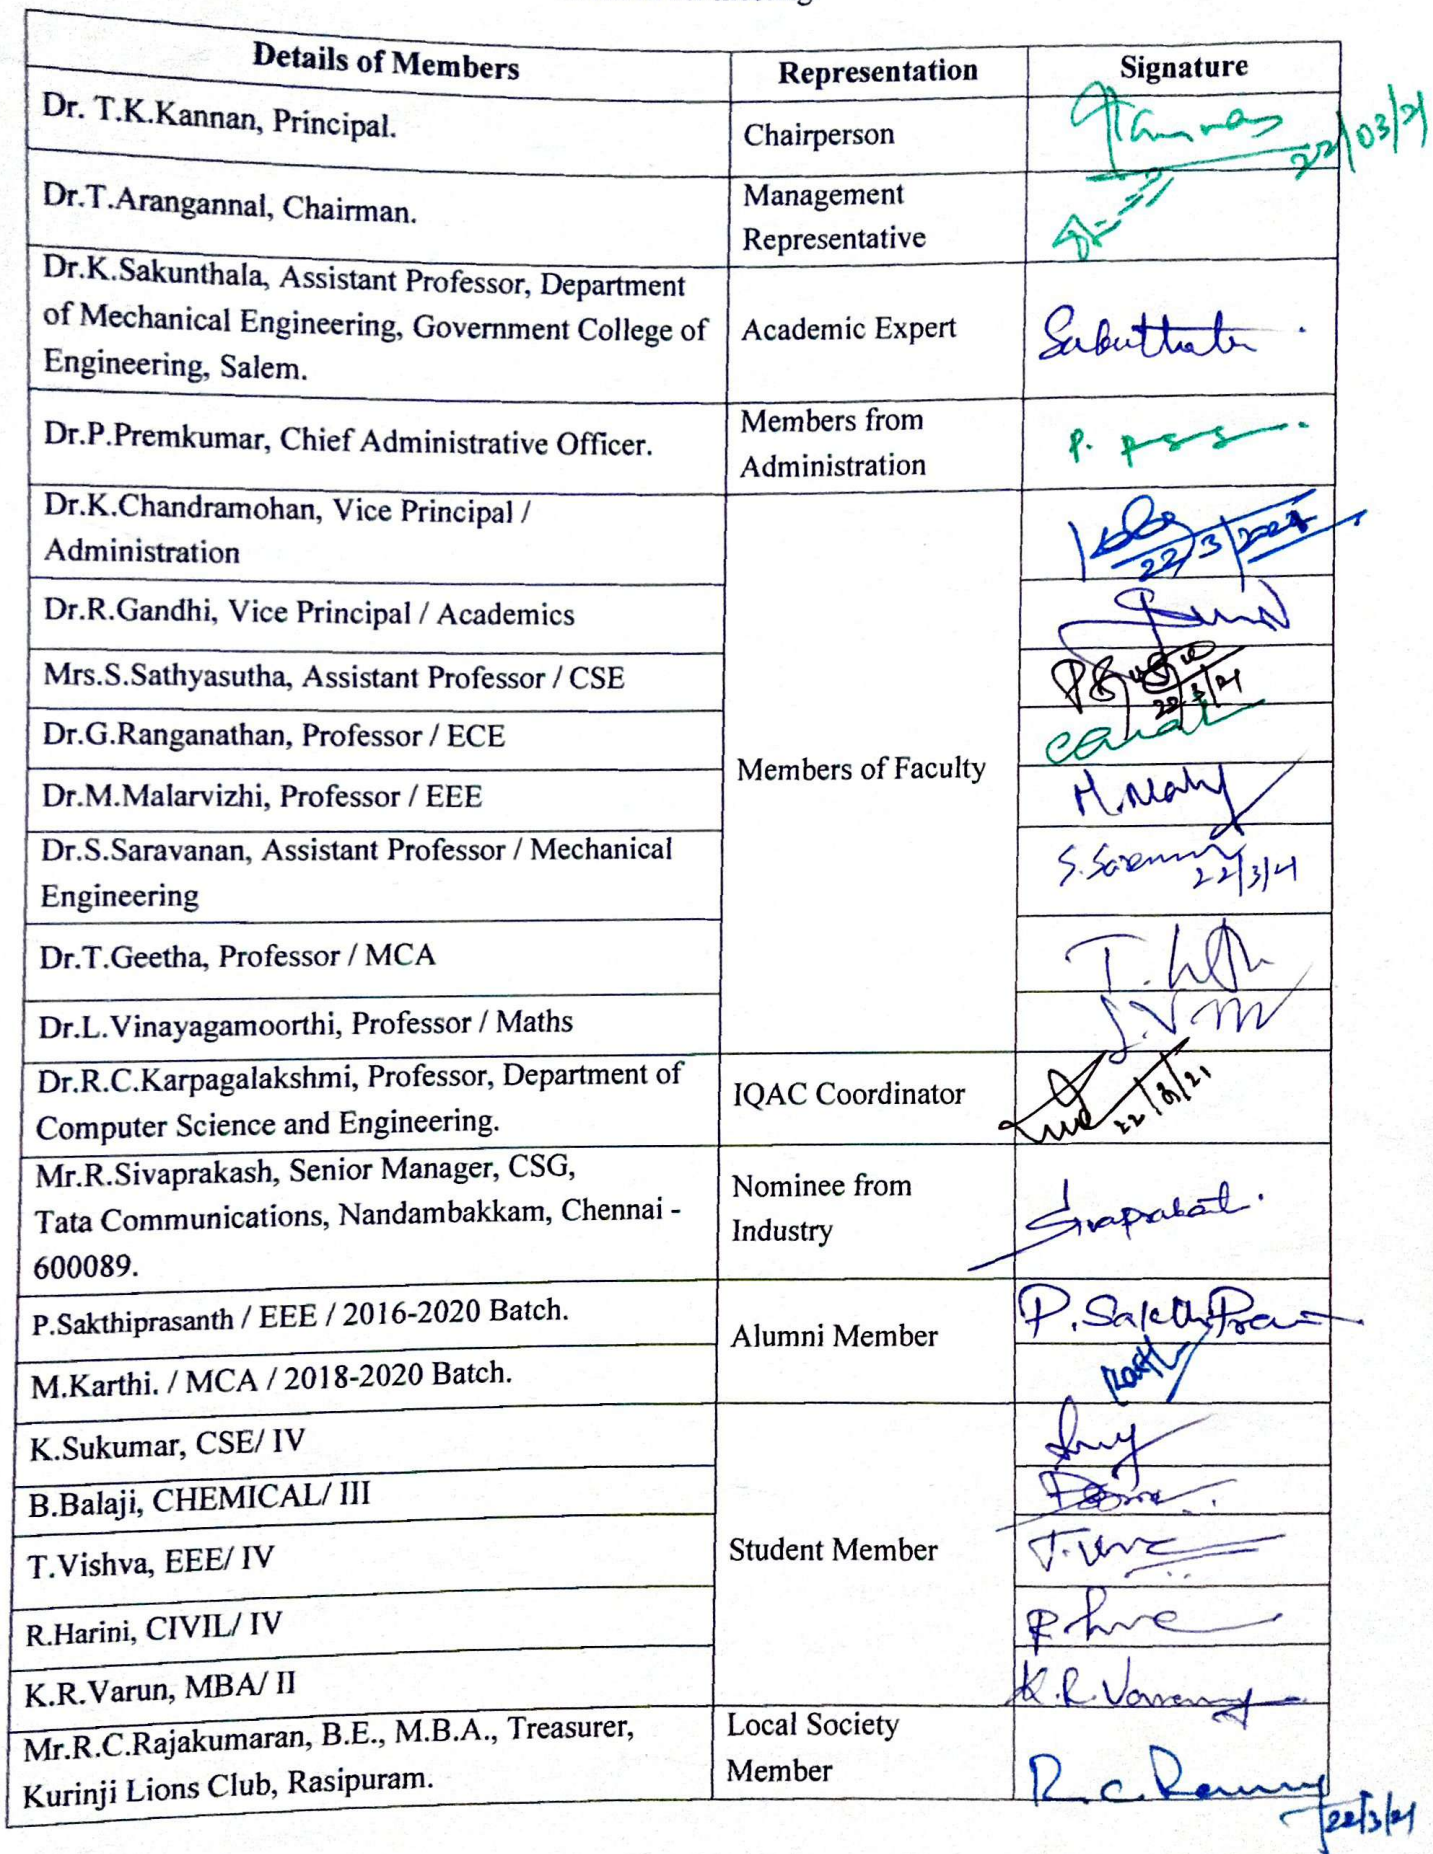 Details of Members
Representation
Signature
Dr. T.K.Kannan, Principal.
Chairperson
22/03/21
Dr.T.Arangannal, Chairman.
Management
Representative
Dr.K.Sakunthala, Assistant Professor, Department
of Mechanical Engineering, Government College of
Engineering, Salem.
Academic Expert
Dr.P.Premkumar, Chief Administrative Officer.
Members from
Administration
P.
Dr.K.Chandramohan, Vice Principal /
Administration
22/3/2021
Dr.R.Gandhi, Vice Principal / Academics
Mrs.S.Sathyasutha, Assistant Professor / CSE
22/3/21
Dr.G.Ranganathan, Professor / ECE
Members of Faculty
Dr.M.Malarvizhi, Professor / EEE
Dr.S.Saravanan, Assistant Professor / Mechanical
Engineering
22/3/21
Dr.T.Geetha, Professor / MCA
Dr.L.Vinayagamoorthi, Professor / Maths
Dr.R.C.Karpagalakshmi, Professor, Department of
Computer Science and Engineering.
IQAC Coordinator
22/3/21
Mr.R.Sivaprakash, Senior Manager, CSG,
Tata Communications, Nandambakkam, Chennai -
600089.
Nominee from
Industry
P.Sakthiprasanth / EEE / 2016-2020 Batch.
Alumni Member
M.Karthi. / MCA / 2018-2020 Batch.
K.Sukumar, CSE/ IV
B.Balaji, CHEMICAL/ III
T.Vishva, EEE/ IV
Student Member
R.Harini, CIVIL/ IV
K.R.Varun, MBA/ II
Mr.R.C.Rajakumaran, B.E., M.B.A., Treasurer,
Kurinji Lions Club, Rasipuram.
Local Society
Member
R.C.
22/3/21